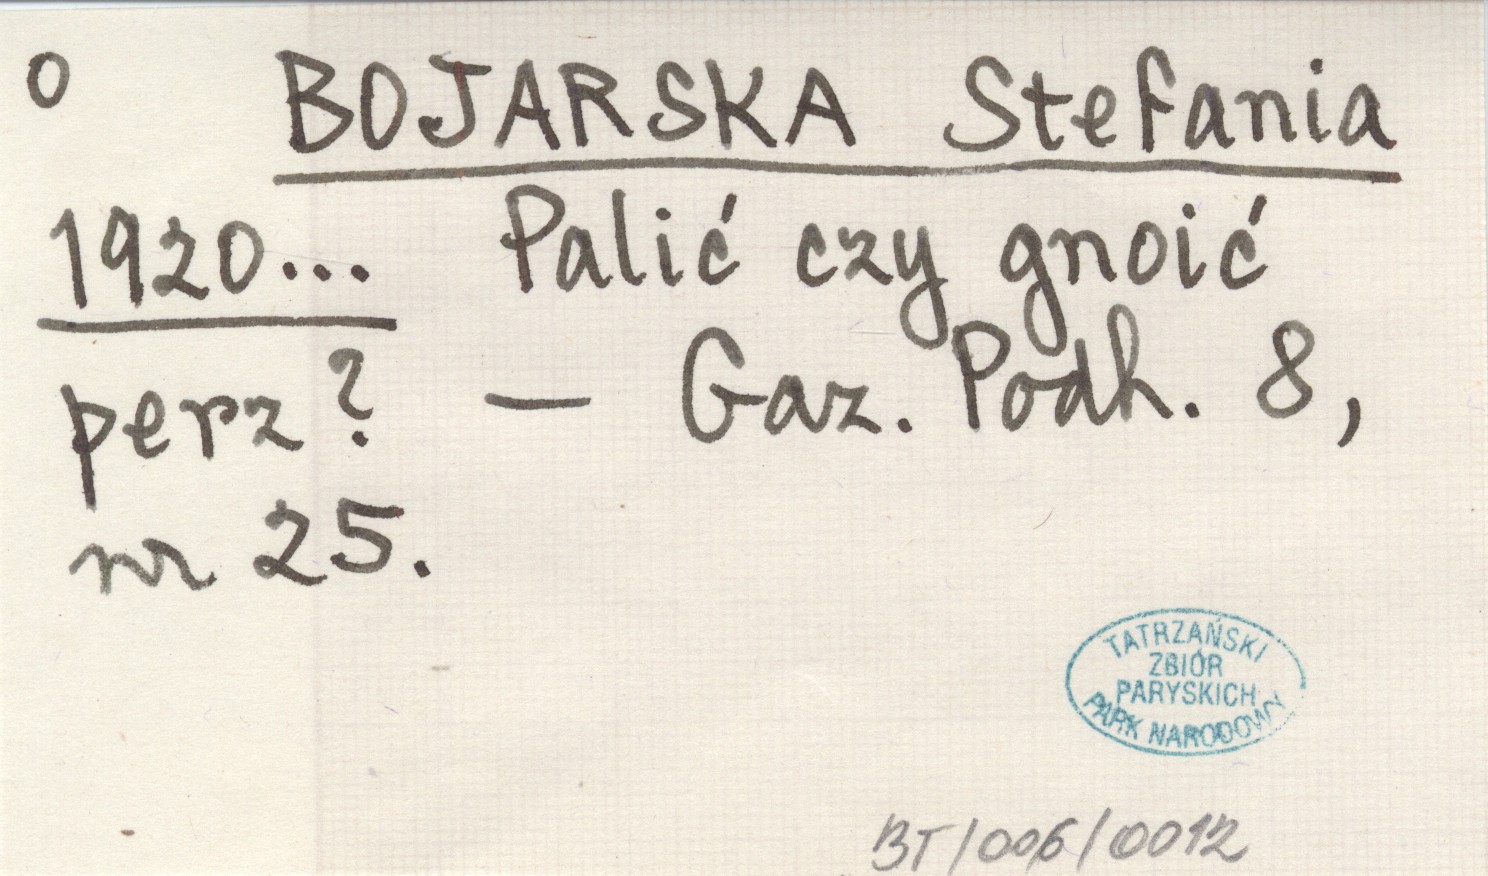 O BOJARSKA Stefania
1920... Palić czy gnoić
perz? — Gaz. Podh. 8,
nr 25.
TATRZAŃSKI
ZBIÓR
PARYSKICH
PARK NARODOWY
BT/006/0012